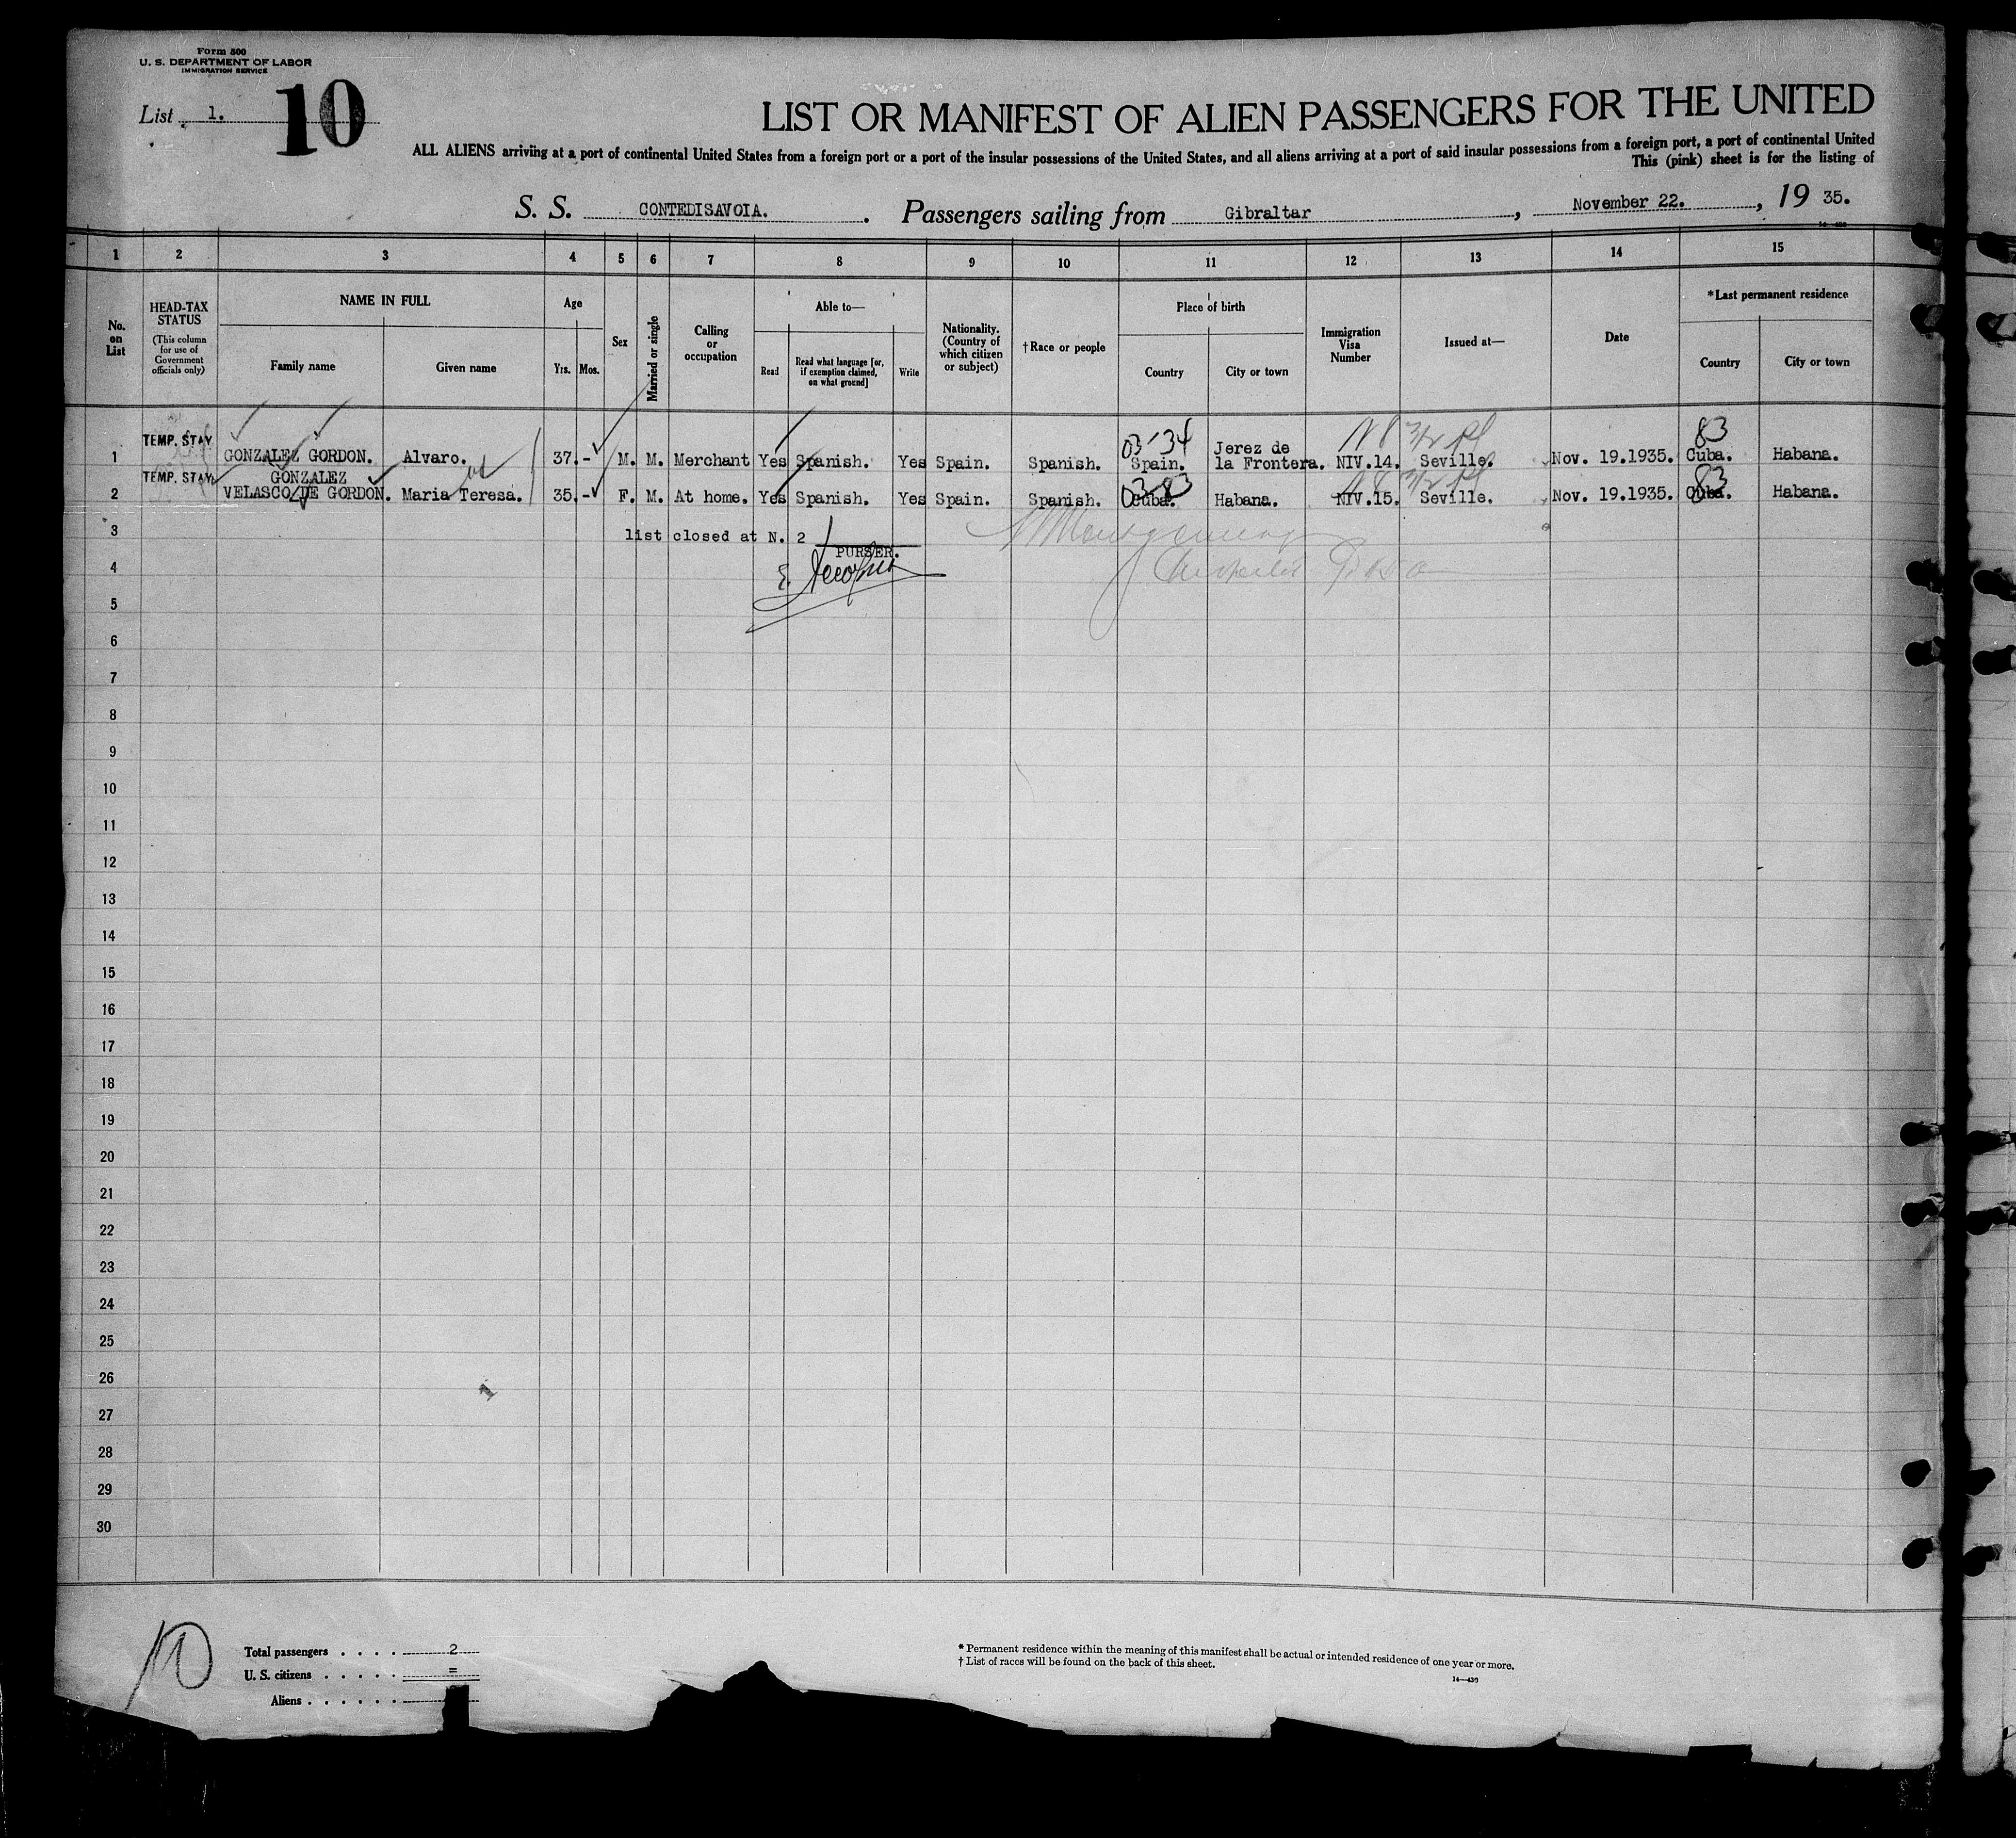 Form 500
U. S. DEPARTMENT OF LABOR
IMMIGRATION SERVICE
List 1.
10
LIST OR MANIFEST OF ALIEN PASSENGERS FOR THE UNITED
ALL ALIENS arriving at a port of continental United States from a foreign port or a port of the insular possessions of the United States, and all aliens arriving at a port of said insular possessions from a foreign port, a port of continental United
This (pink) sheet is for the listing of
S. S. CONTEDISAVOIA. Passengers sailing from Gibraltar, November 22., 19 35.
1 2 3 4 5 6 7 8 9 10 11 12 13 14 15
No. on List
HEAD-TAX STATUS
(This column for use of Government officials only)
NAME IN FULL
Family name Given name
Age
Yrs. Mos.
Sex
Married or single
Calling or occupation
Able to—
Read Read what language [or, if exemption claimed, on what ground] Write
Nationality. (Country of which citizen or subject)
†Race or people
Place of birth
Country City or town
Immigration Visa Number
Issued at—
Date
*Last permanent residence
Country City or town
TEMP. STAY 03-34 Jerez de 83
1 GONZALEZ GORDON. Alvaro. 37. - M. M. Merchant Yes Spanish. Yes Spain. Spanish. Spain. la Frontera. NIV.14. Seville. Nov. 19.1935. Cuba. Habana.
TEMP. STAY GONZALEZ 83
2 VELASCO DE GORDON. Maria Teresa. 35. - F. M. At home. Yes Spanish. Yes Spain. Spanish. Cuba. Habana. NIV.15. Seville. Nov. 19.1935. Cuba. Habana.
3 list closed at N. 2
PURSER.
4
5
6
7
8
9
10
11
12
13
14
15
16
17
18
19
20
21
22
23
24
25
26
27
28
29
30
10
Total passengers . . . . 2
U. S. citizens . . . . . =
Aliens . . . . . .
* Permanent residence within the meaning of this manifest shall be actual or intended residence of one year or more.
† List of races will be found on the back of this sheet.